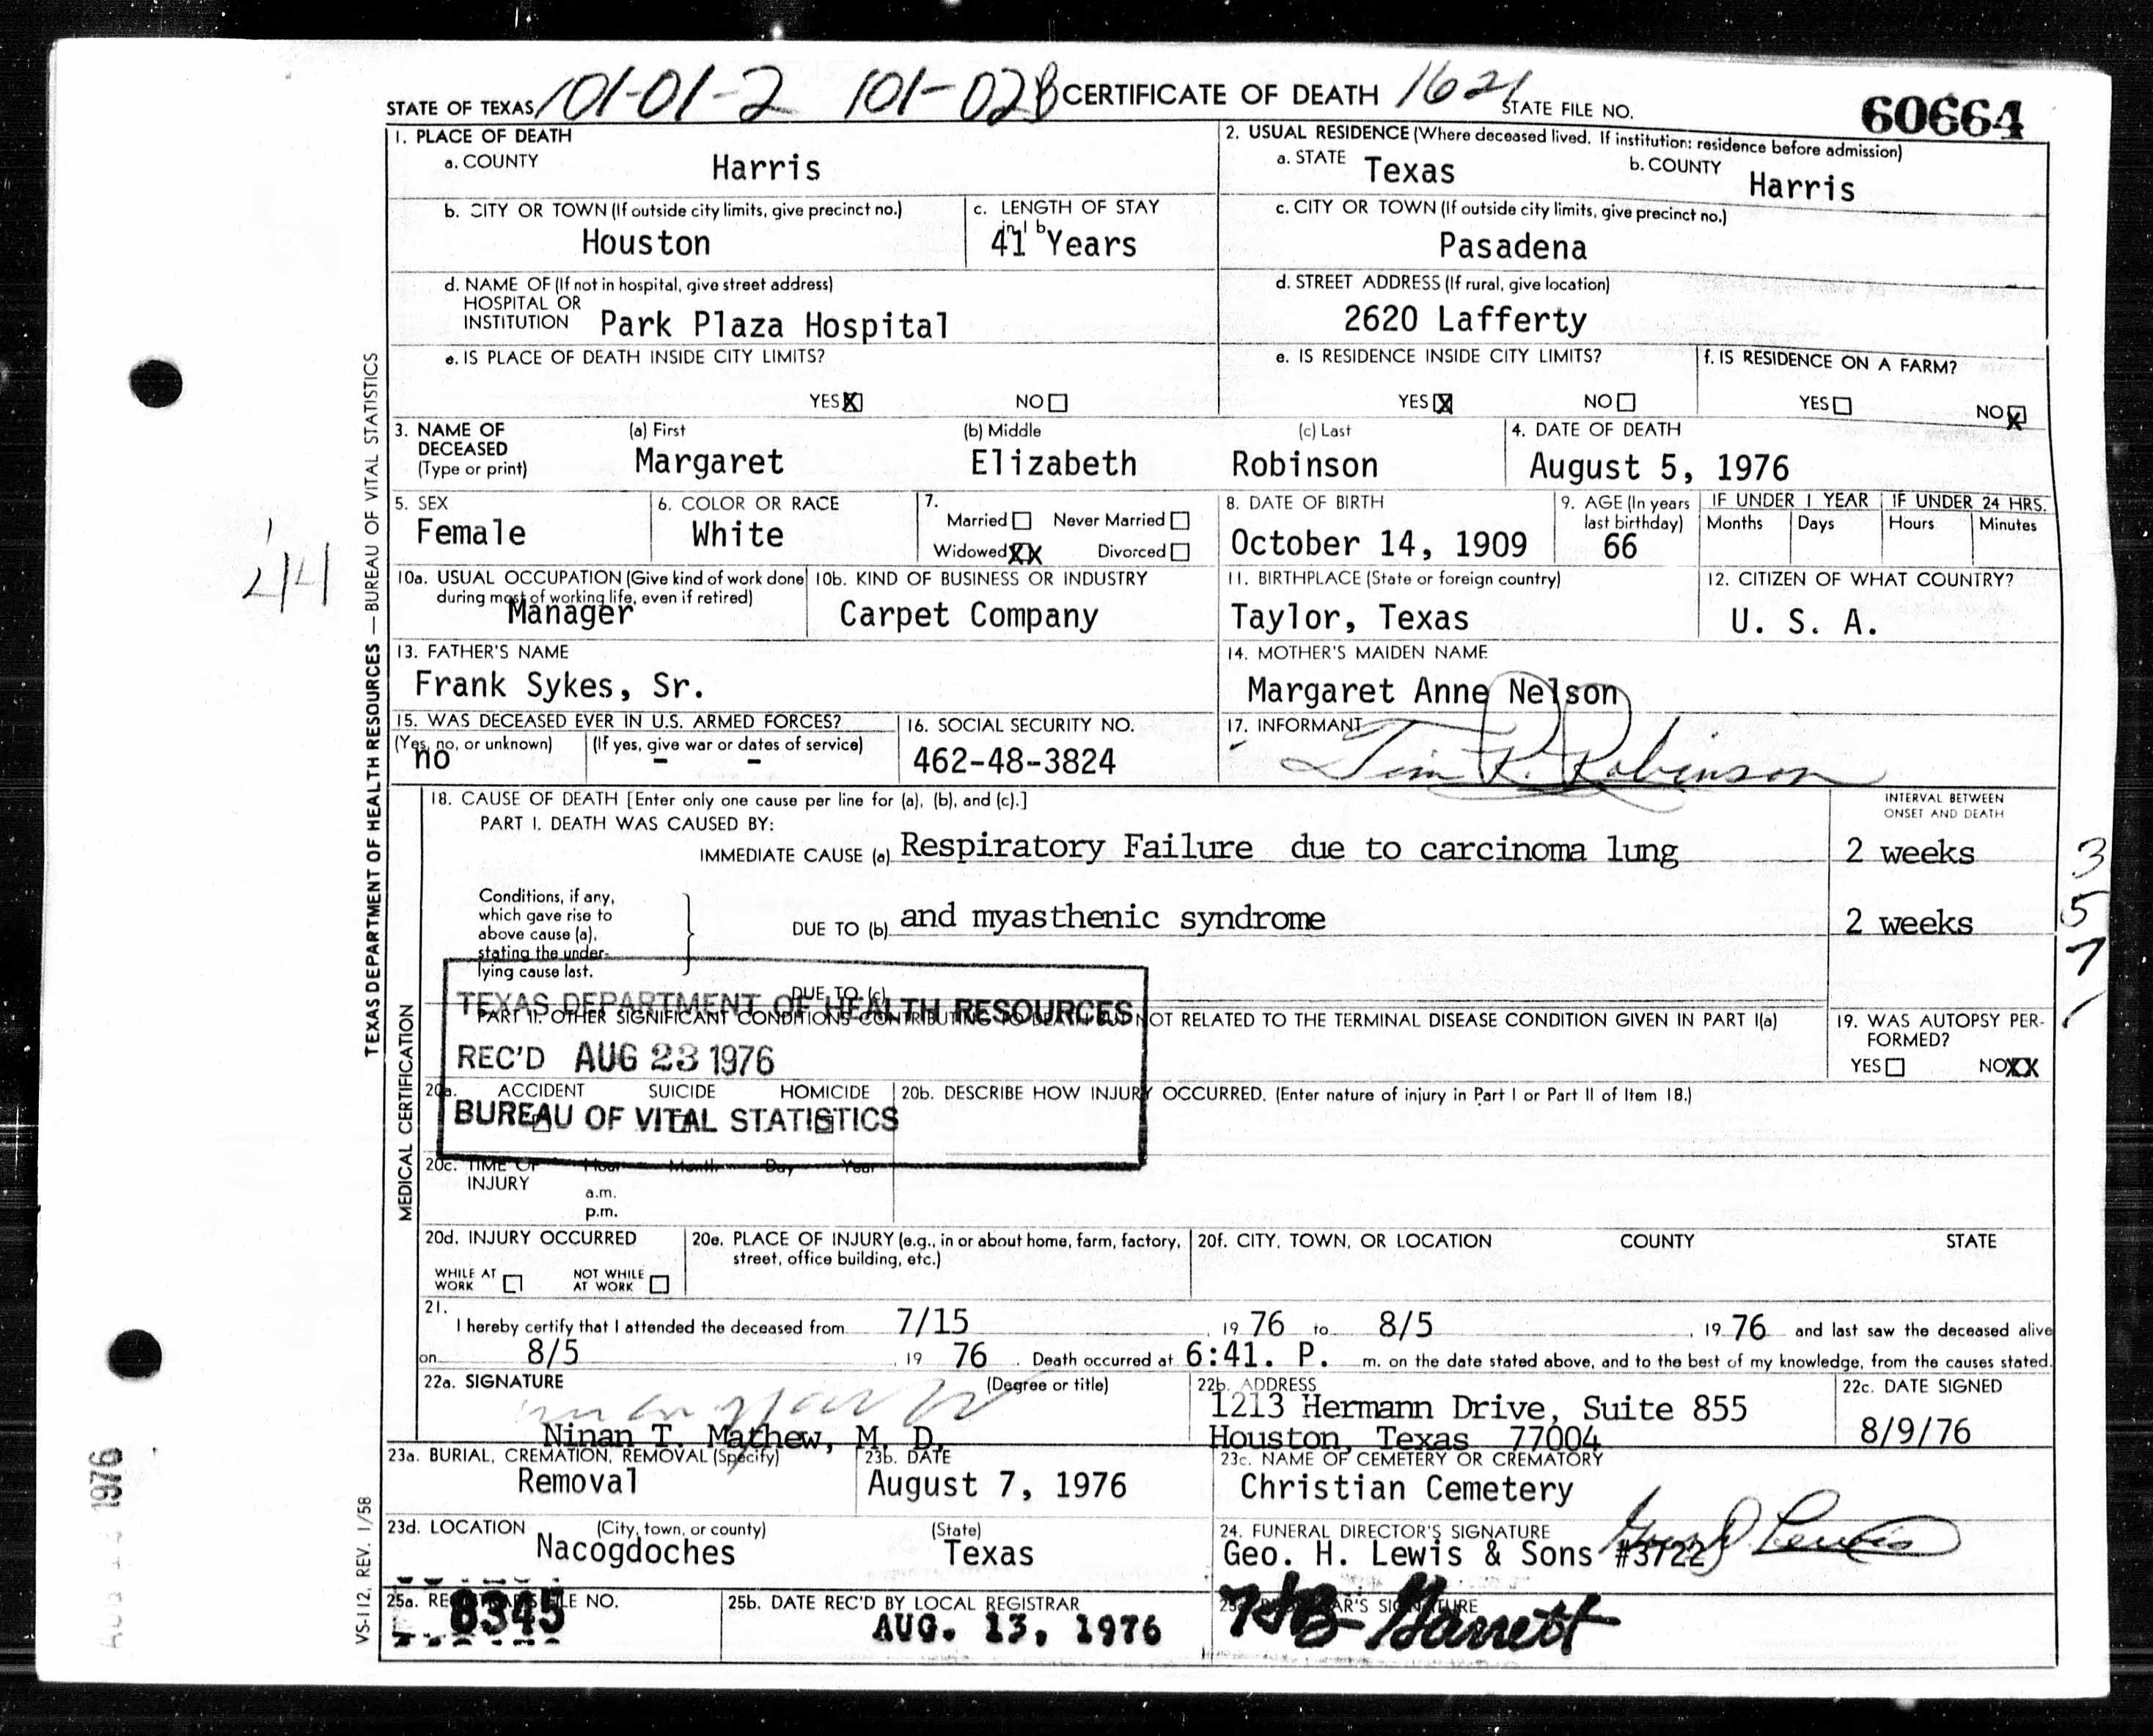 STATE OF TEXAS 101-01-2 101-02B CERTIFICATE OF DEATH 1621 STATE FILE NO. 60664
1. PLACE OF DEATH
a. COUNTY Harris
2. USUAL RESIDENCE (Where deceased lived. If institution: residence before admission)
a. STATE Texas b. COUNTY Harris
b. CITY OR TOWN (If outside city limits, give precinct no.) Houston
c. LENGTH OF STAY in 1 b 41 Years
c. CITY OR TOWN (If outside city limits, give precinct no.) Pasadena
d. NAME OF (If not in hospital, give street address)
HOSPITAL OR
INSTITUTION Park Plaza Hospital
d. STREET ADDRESS (If rural, give location)
2620 Lafferty
e. IS PLACE OF DEATH INSIDE CITY LIMITS?
YES X NO
e. IS RESIDENCE INSIDE CITY LIMITS?
YES X NO
f. IS RESIDENCE ON A FARM?
YES NO X
3. NAME OF DECEASED (Type or print)
(a) First (b) Middle (c) Last
Margaret Elizabeth Robinson
4. DATE OF DEATH
August 5, 1976
5. SEX
Female
6. COLOR OR RACE
White
7.
Married Never Married
Widowed XX Divorced
8. DATE OF BIRTH
October 14, 1909
9. AGE (In years
last birthday)
66
IF UNDER 1 YEAR IF UNDER 24 HRS.
Months Days Hours Minutes
10a. USUAL OCCUPATION (Give kind of work done
during most of working life, even if retired)
Manager
10b. KIND OF BUSINESS OR INDUSTRY
Carpet Company
11. BIRTHPLACE (State or foreign country)
Taylor, Texas
12. CITIZEN OF WHAT COUNTRY?
U. S. A.
13. FATHER'S NAME
Frank Sykes, Sr.
14. MOTHER'S MAIDEN NAME
Margaret Anne Nelson
15. WAS DECEASED EVER IN U.S. ARMED FORCES?
(Yes, no, or unknown) (If yes, give war or dates of service)
no - -
16. SOCIAL SECURITY NO.
462-48-3824
17. INFORMANT
Tim R. Robinson
18. CAUSE OF DEATH [Enter only one cause per line for (a), (b), and (c).]
INTERVAL BETWEEN
ONSET AND DEATH
PART I. DEATH WAS CAUSED BY:
IMMEDIATE CAUSE (a) Respiratory Failure due to carcinoma lung 2 weeks
Conditions, if any,
which gave rise to
above cause (a),
stating the under-
lying cause last.
DUE TO (b) and myasthenic syndrome 2 weeks
DUE TO (c)
PART II. OTHER SIGNIFICANT CONDITIONS CONTRIBUTING TO DEATH BUT NOT RELATED TO THE TERMINAL DISEASE CONDITION GIVEN IN PART I(a)
19. WAS AUTOPSY PER-
FORMED?
YES NO XX
TEXAS DEPARTMENT OF HEALTH RESOURCES
REC'D AUG 23 1976
BUREAU OF VITAL STATISTICS
20a. ACCIDENT SUICIDE HOMICIDE
20b. DESCRIBE HOW INJURY OCCURRED. (Enter nature of injury in Part I or Part II of Item 18.)
20c. TIME OF Hour Month Day Year
INJURY
a.m.
p.m.
20d. INJURY OCCURRED
WHILE AT
WORK
NOT WHILE
AT WORK
20e. PLACE OF INJURY (e.g., in or about home, farm, factory,
street, office building, etc.)
20f. CITY, TOWN, OR LOCATION COUNTY STATE
21.
I hereby certify that I attended the deceased from 7/15, 19 76 to 8/5, 19 76 and last saw the deceased alive
on 8/5, 19 76. Death occurred at 6:41. P. m. on the date stated above, and to the best of my knowledge, from the causes stated.
22a. SIGNATURE (Degree or title)
Ninan T. Mathew, M. D.
22b. ADDRESS
1213 Hermann Drive, Suite 855
Houston, Texas 77004
22c. DATE SIGNED
8/9/76
23a. BURIAL, CREMATION, REMOVAL (Specify)
Removal
23b. DATE
August 7, 1976
23c. NAME OF CEMETERY OR CREMATORY
Christian Cemetery
23d. LOCATION (City, town, or county) (State)
Nacogdoches Texas
24. FUNERAL DIRECTOR'S SIGNATURE
Geo. H. Lewis & Sons #3722 Lewis
25a. REGISTRAR'S FILE NO.
8345
25b. DATE REC'D BY LOCAL REGISTRAR
AUG. 13, 1976
25c. REGISTRAR'S SIGNATURE
Garrett
TEXAS DEPARTMENT OF HEALTH RESOURCES — BUREAU OF VITAL STATISTICS
MEDICAL CERTIFICATION
VS-112, REV. 1/58
3
5
7
1976